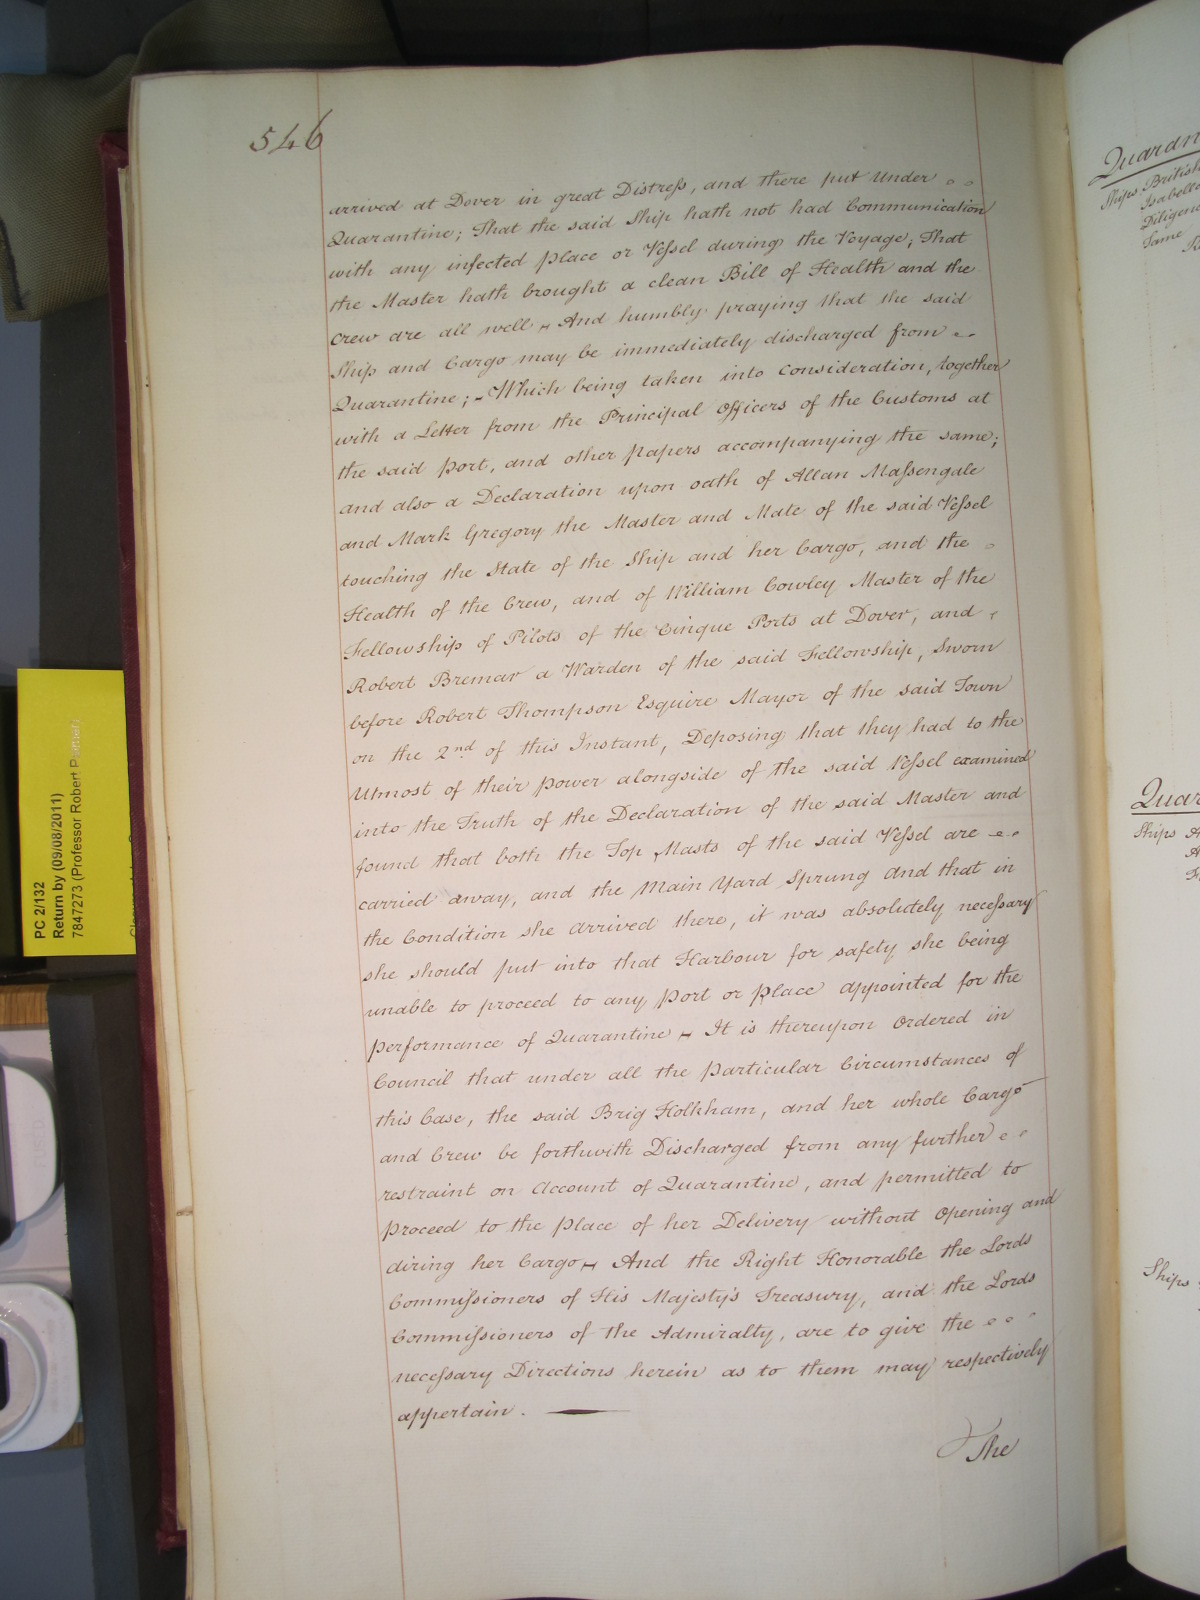 546
arrived at Dover in great Distreſs, and there put under
Quarantine; That the said Ship hath not had Communication
with any infected place or Veſsel during the Voyage; That
the Master hath brought a clean Bill of Health and the
crew are all well – And humbly praying that the said
Ship and Cargo may be immediately discharged from
Quarantine; – Which being taken into consideration, together
with a Letter from the Principal Officers of the Customs at
the said port, and other papers accompanying the same;
and also a Declaration upon oath of Allan Maſsengale
and Mark Gregory the Master and Mate of the said Veſsel
touching the State of the Ship and her Cargo, and the
Health of the Crew, and of William Cowley Master of the
Fellowship of Pilots of the Cinque Ports at Dover, and
Robert Bremar a Warden of the said Fellowship, Sworn
before Robert Thompson Esquire Mayor of the said Town
on the 2nd of this Instant, Deposing that they had to the
Utmost of their power alongside of the said Veſsel examined
into the Truth of the Declaration of the said Master and
found that both the Top Masts of the said Veſsel are
carried away, and the Main Yard Sprung and that in
the Condition she arrived there, it was absolutely neceſsary
she should put into that Harbour for safety she being
unable to proceed to any port or place appointed for the
performance of Quarantine – It is thereupon Ordered in
Council that under all the particular Circumstances of
this Case, the said Brig Holkham, and her whole Cargo
and Crew be forthwith Discharged from any further
restraint on Account of Quarantine, and permitted to
proceed to the place of her Delivery without Opening and
airing her Cargo – And the Right Honorable the Lords
Commiſsioners of His Majesty's Treasury, and the Lords
Commiſsioners of the Admiralty, are to give the
neceſsary Directions herein as to them may respectively
appertain.
The
PC 2/132
Return by (09/08/2011)
7847273 (Professor Robert
Quaran
Ships British
Isabella
Diligenc
Same
Quar
Ships
Ships